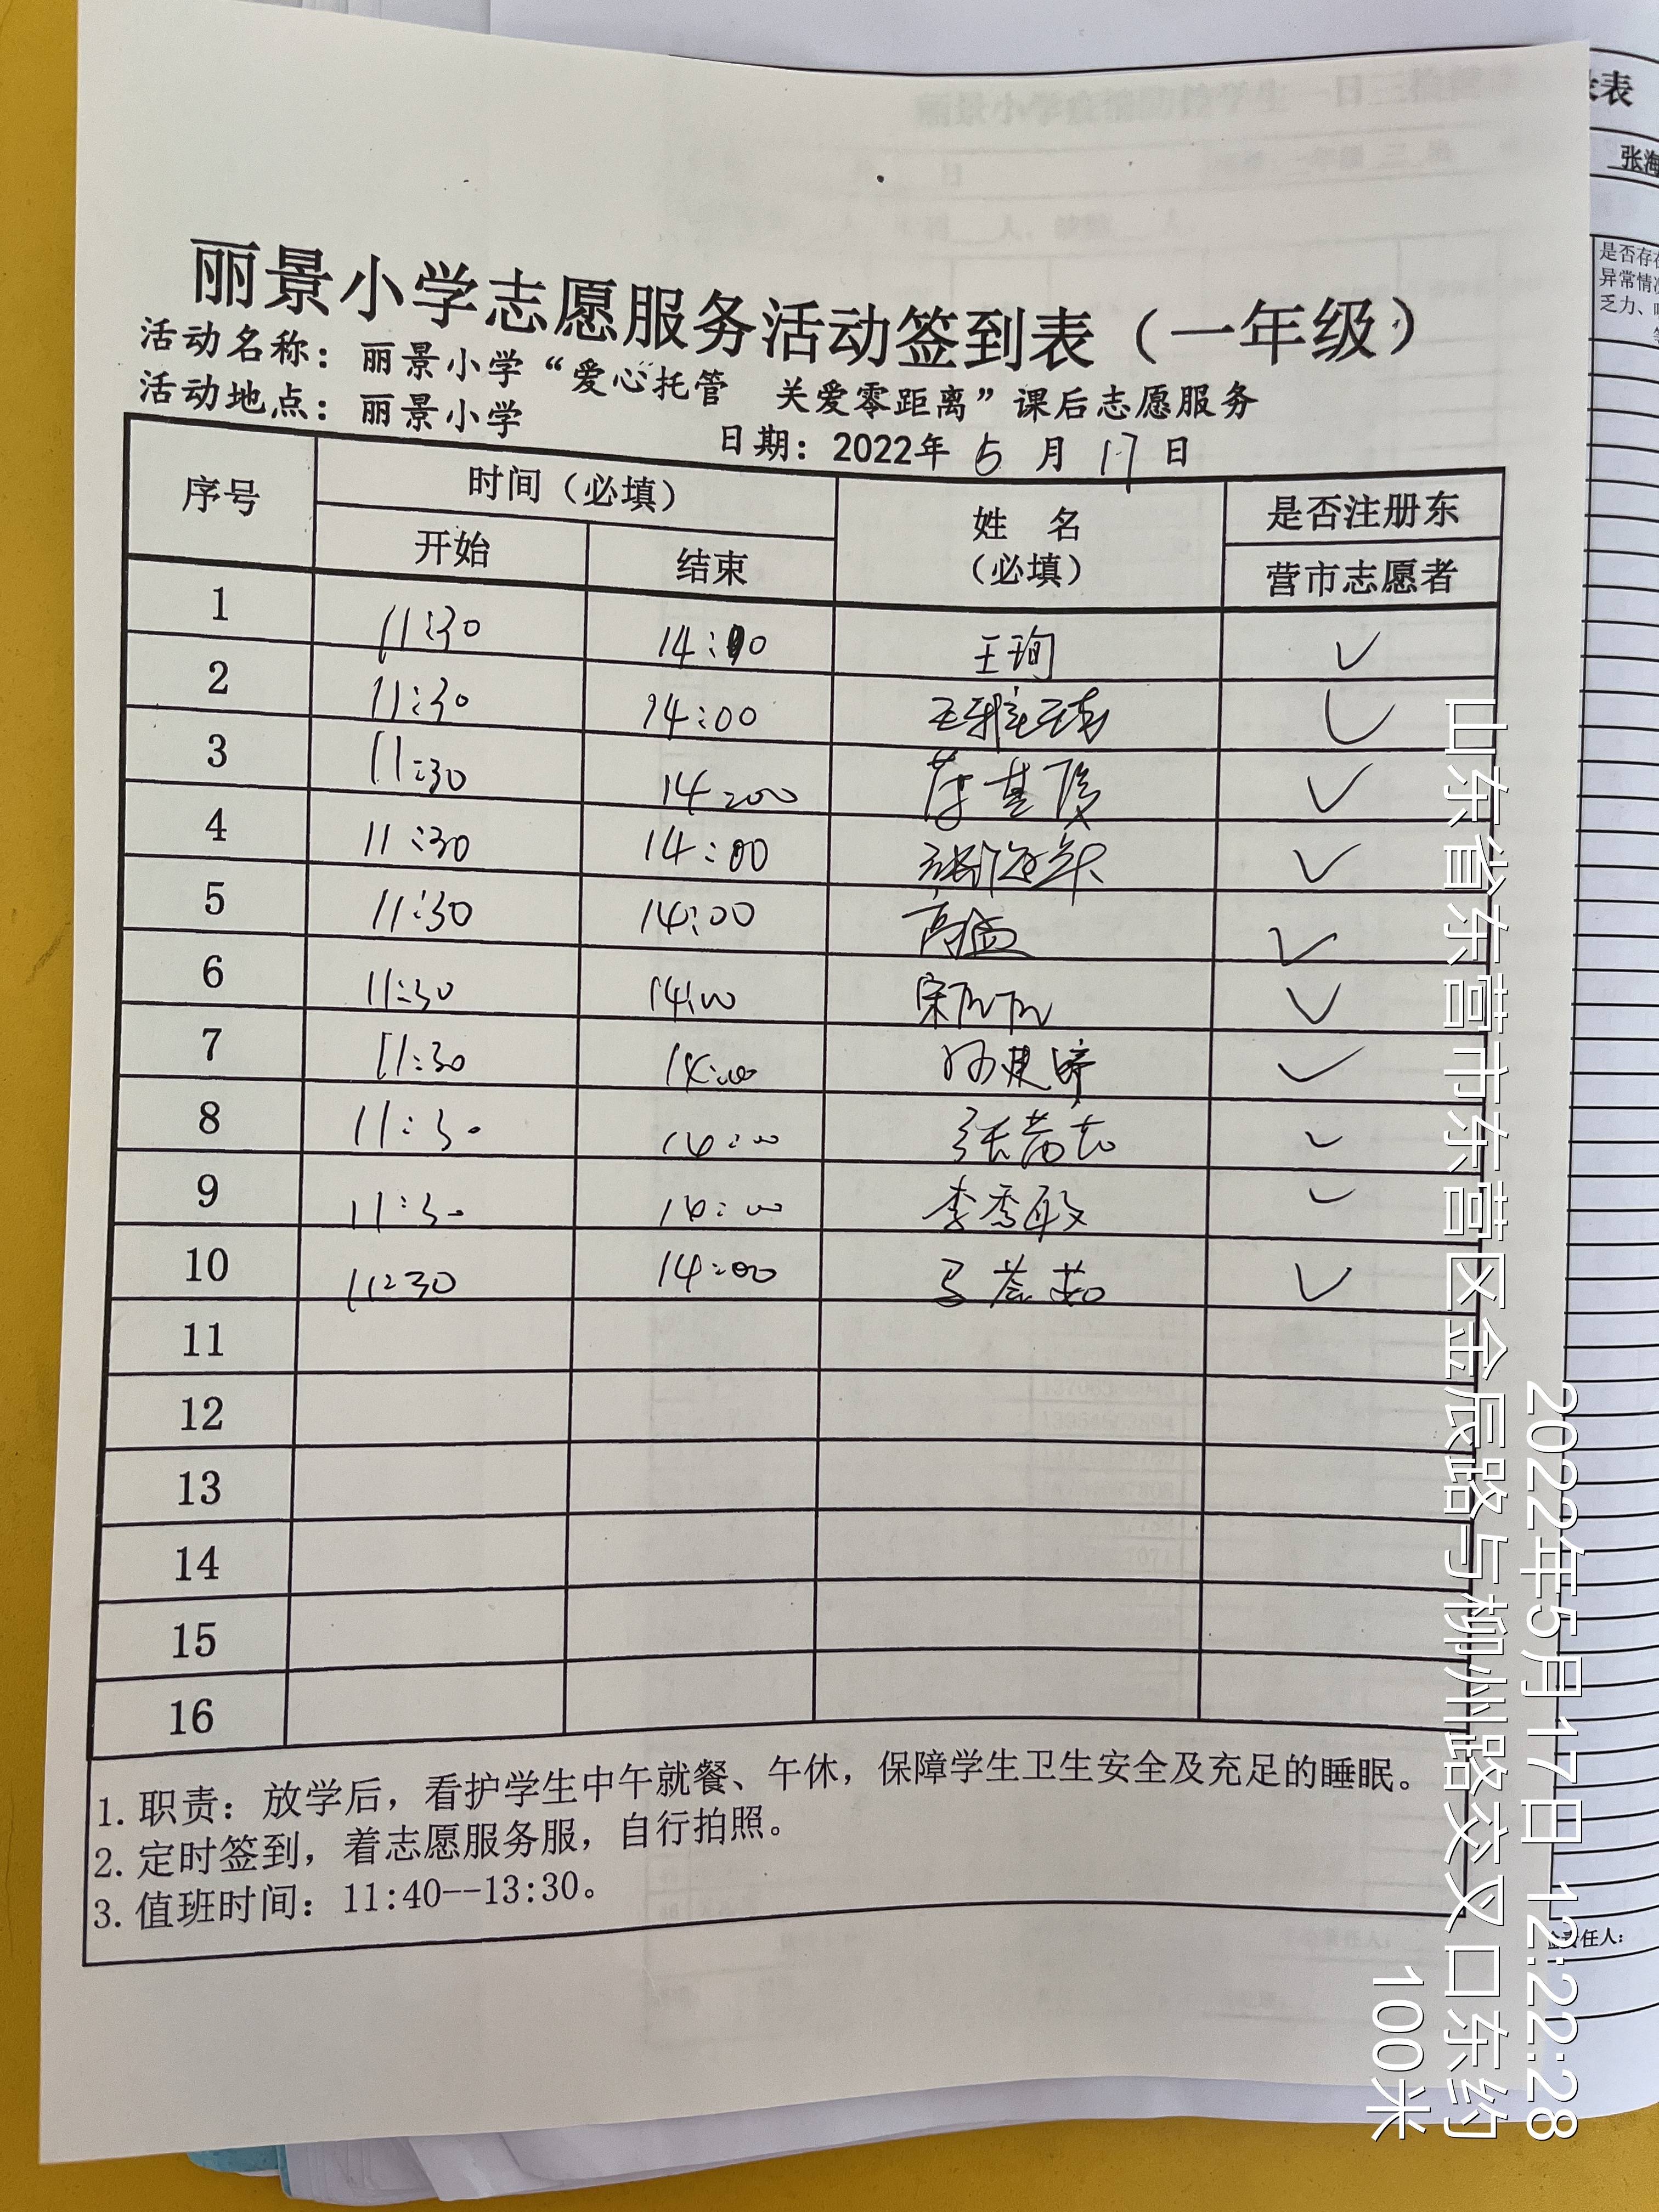 丽景小学志愿服务活动签到表（一年级）
活动名称：丽景小学“爱心托管 关爱零距离”课后志愿服务
活动地点：丽景小学
日期：2022年 5 月 17 日
序号 时间（必填） 姓 名（必填） 是否注册东营市志愿者
开始 结束
1 11:30 14:00 王珣 ✓
2 11:30 14:00 ✓
3 11:30 14:00 ✓
4 11:30 14:00 ✓
5 11:30 14:00 高猛 ✓
6 11:30 14:00 ✓
7 11:30 14:00 ✓
8 11:30 14:00 ✓
9 11:30 14:00 李秀敏 ✓
10 11:30 14:00 ✓
11
12
13
14
15
16
1. 职责：放学后，看护学生中午就餐、午休，保障学生卫生安全及充足的睡眠。
2. 定时签到，着志愿服务服，自行拍照。
3. 值班时间：11:40--13:30。
表
张海
是否存在
异常情况
乏力、
责任人：
2022年5月17日 12:22:28
山东省东营市东营区金辰路与柳州路交叉口东约
100米